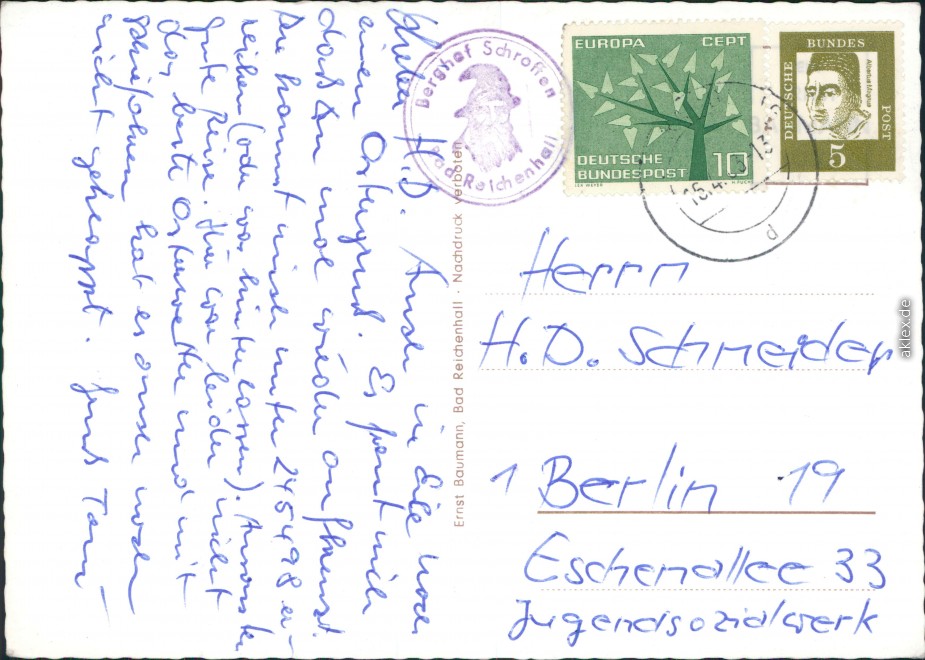 Lieber H.D. Auch in Eile noch
einen Ostergruß. Es freut mich
dass Du mal wieder auftauchst.
Du kannst mich unter 245498 er-
reichen (oder was hinterlassen).
gute Reise. Hier war leider nicht
das beste Osterwetter und mit
Skifahren hat es auch noch
nicht geklappt. Gruß
Berghof Schroffen
Bad Reichenhall
EUROPA CEPT
DEUTSCHE
BUNDESPOST 10
LEX WEYER H. FUCHS
DEUTSCHE BUNDES POST
Albertus Magnus
5
Ernst Baumann, Bad Reichenhall · Nachdruck verboten
Herrn
H. D. Schneider
1 Berlin 19
Eschenallee 33
Jugendsozialwerk
aklex.de